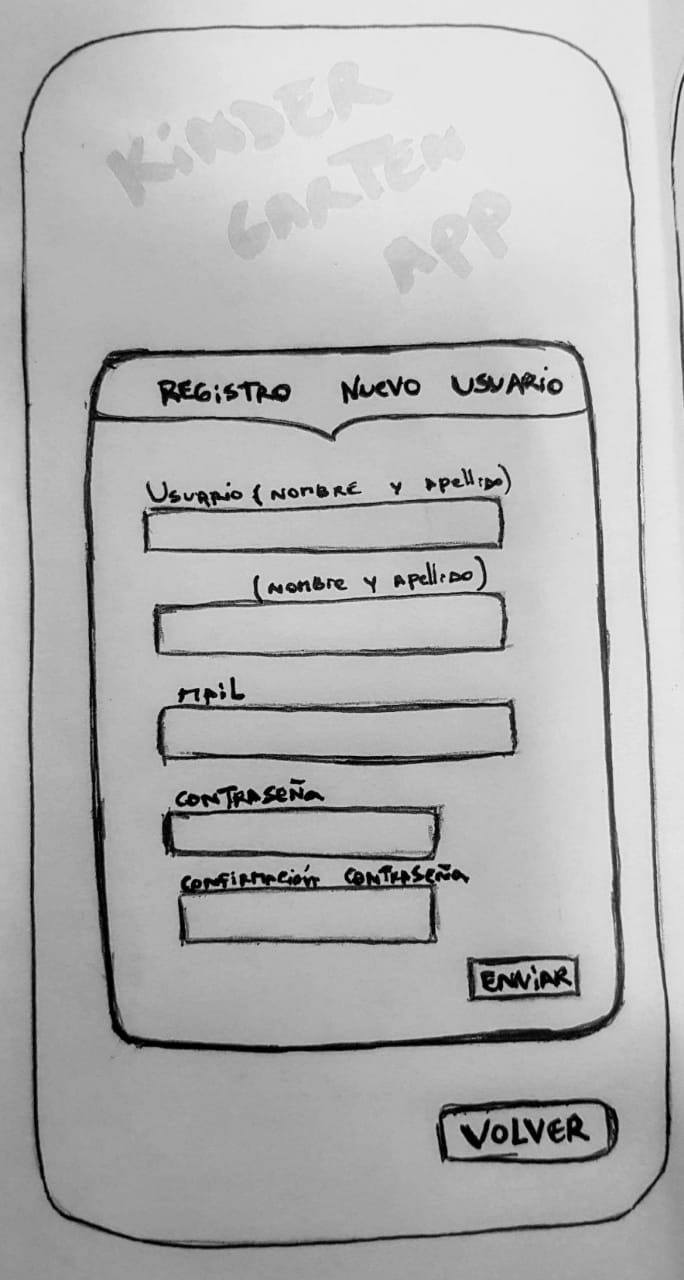 KINDER
GARTEN
APP
REGISTRO NUEVO USUARIO
USUARIO (NOMBRE Y APELLIDO)
(NOMBRE Y APELLIDO)
MAIL
CONTRASEÑA
CONFIRMACIÓN CONTRASEÑA
ENVIAR
VOLVER